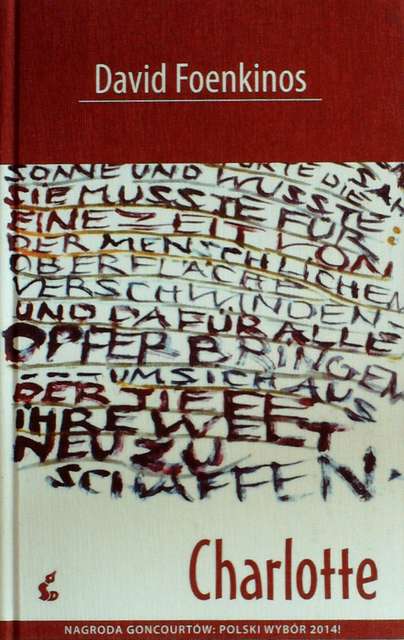 David Foenkinos
SONNE UND WUSSTE:
SIE MUSSTE FÜR
EINE ZEIT VON
DER MENSCHLICHEN
OBERFLÄCHE
VERSCHWINDEN
UND DAFÜR ALLE
OPFER BRINGEN
UM SICH AUS
DER TIEFE
IHRE WELT
NEU ZU
SCHAFFEN.
Charlotte
NAGRODA GONCOURTÓW: POLSKI WYBÓR 2014!